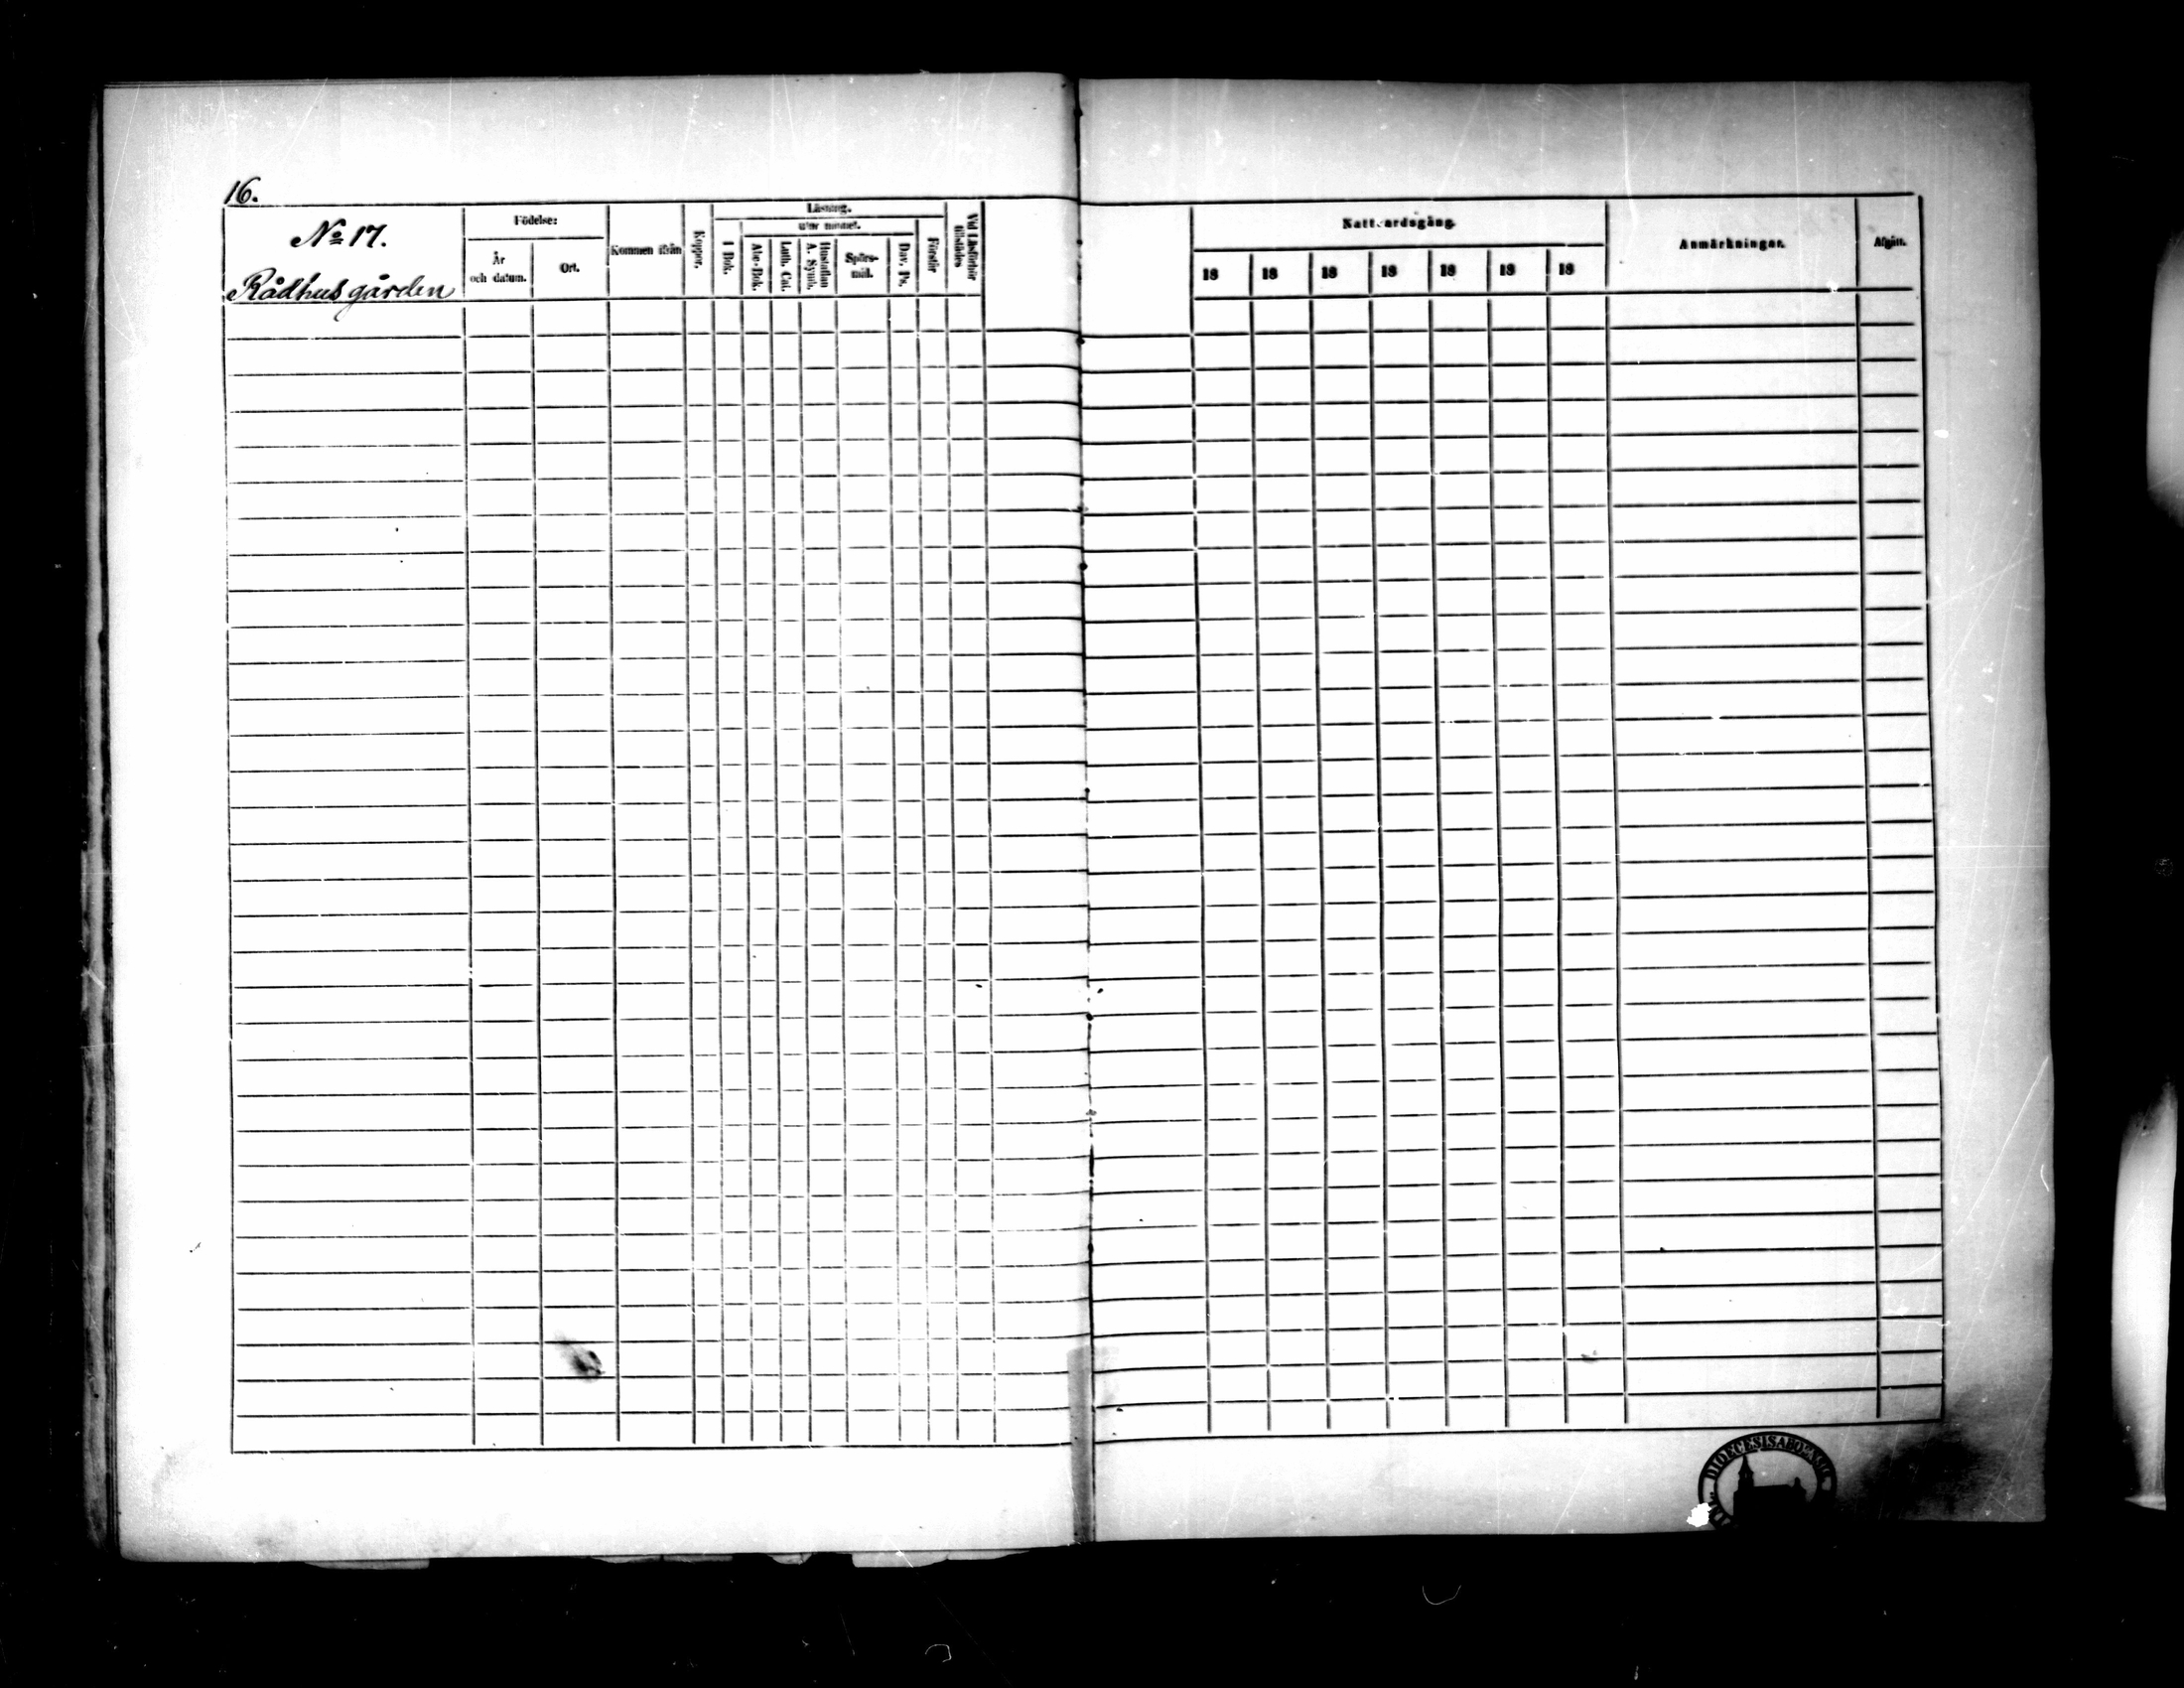 16.
No 17.
Rådhusgården
Födelse:
År
och datum.
Ort.
Kommen ifrån
Koppor.
Läsning.
utur minnet.
I Bok.
Abc-Bok.
Luth. Cat.
Hustaflan
A. Symb.
Spörs-
mål.
Dav. Ps.
Förstår
Vid Läsförhör
tillstädes
Nattvardsgång.
18 18 18 18 18 18 18
Anmärkningar.
Afgått.
DIOECESIS ABOENSIS